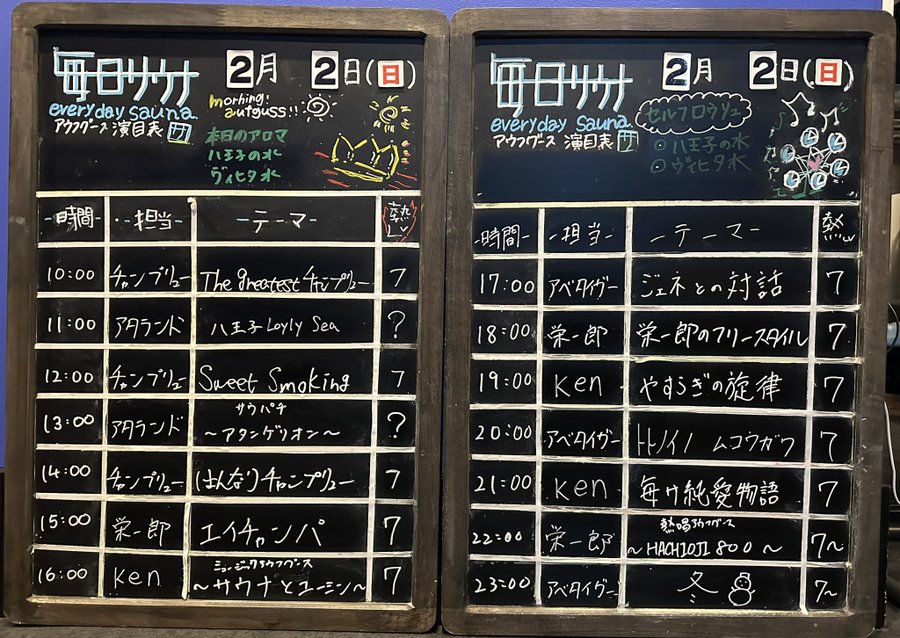 毎日サウナ
2月 2日(日)
everyday sauna
morning!
autguss!!
アウフグース 演目表 サ
本日のアロマ
八王子の水
ヴィヒタ水
時間 担当 テーマ 熱
10:00 チャンプリュー The greatest チャンプリュー 7
11:00 アタランド 八王子 Loyly Sea ?
12:00 チャンプリュー Sweet Smoking 7
13:00 アタランド サウパチ ?
〜アタンゲリオン〜
14:00 チャンプリュー はんなりチャンプリュー 7
15:00 栄一郎 エイチャンパ 7
16:00 Ken ミュージックアウフグース 7
〜サウナとユーミン〜
毎日サウナ
2月 2日(日)
everyday sauna
アウフグース 演目表 サ
セルフロウリュ
八王子の水
ヴィヒタ水
時間 担当 テーマ 熱
17:00 アベタイガー ジェネとの対話 7
18:00 栄一郎 栄一郎のフリースタイル 7
19:00 Ken やすらぎの旋律 7
20:00 アベタイガー トトノイノ ムコウガワ 7
21:00 Ken 毎け純愛物語 7
22:00 栄一郎 熱唱アウフグース 7〜
〜HACHIOJI 800〜
23:00 アベタイガー 冬 7〜